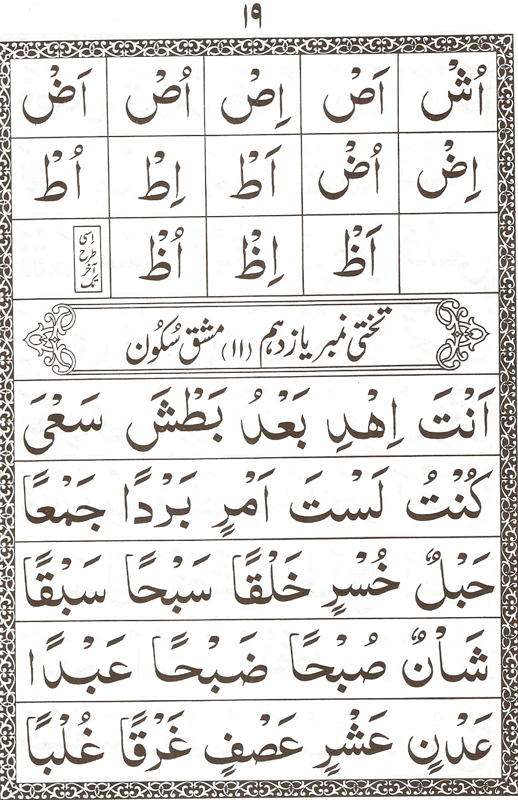 ۱۹
اُشْ اَصْ اِصْ اُصْ اَضْ
اِضْ اُضْ اَطْ اِطْ اُطْ
اَظْ اِظْ اُظْ
اسی
طرح
آخر
تک
تختی نمبر یازدہم (۱۱) مشق سُکُون
اَنْتَ اِهْدِ بَعْدُ بَطْشَ سَعْیَ
کُنْتُ لَسْتَ اَمْرٍ بَرْدًا جَمْعًا
حَبْلٌ خُسْرٍ خَلْقًا سَبْحًا سَبْقًا
شَاْنٌ صُبْحًا ضَبْحًا عَبْدًا
عَدْنٍ عَشْرٍ عَصْفٍ غَرْقًا غُلْبًا